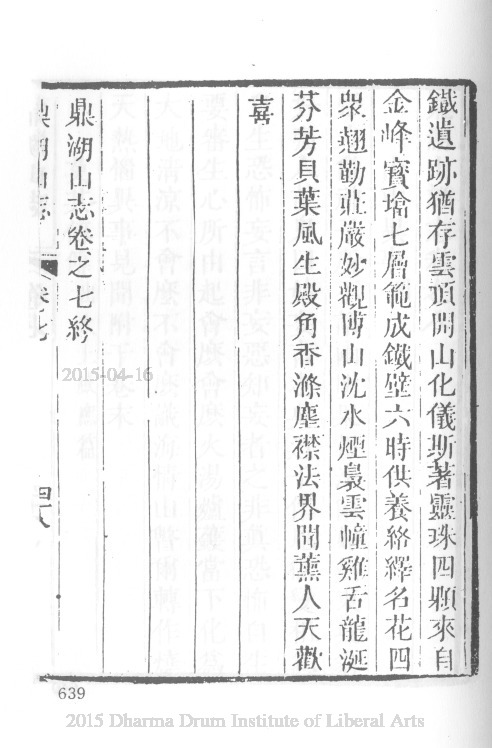 鐵遺跡猶存雲頂開山化儀斯著靈珠四顆來自
金峰寶墖七層範成鐵壁六時供養絡繹名花四
衆翹勤莊嚴妙觀博山沈水煙裊雲幢雞舌龍涎
芬芳貝葉風生殿角香滌塵襟法界聞薰人天歡
喜
鼎湖山志卷之七終
鼎湖山志
卷七
四八
2015-04-16
639
2015 Dharma Drum Institute of Liberal Arts